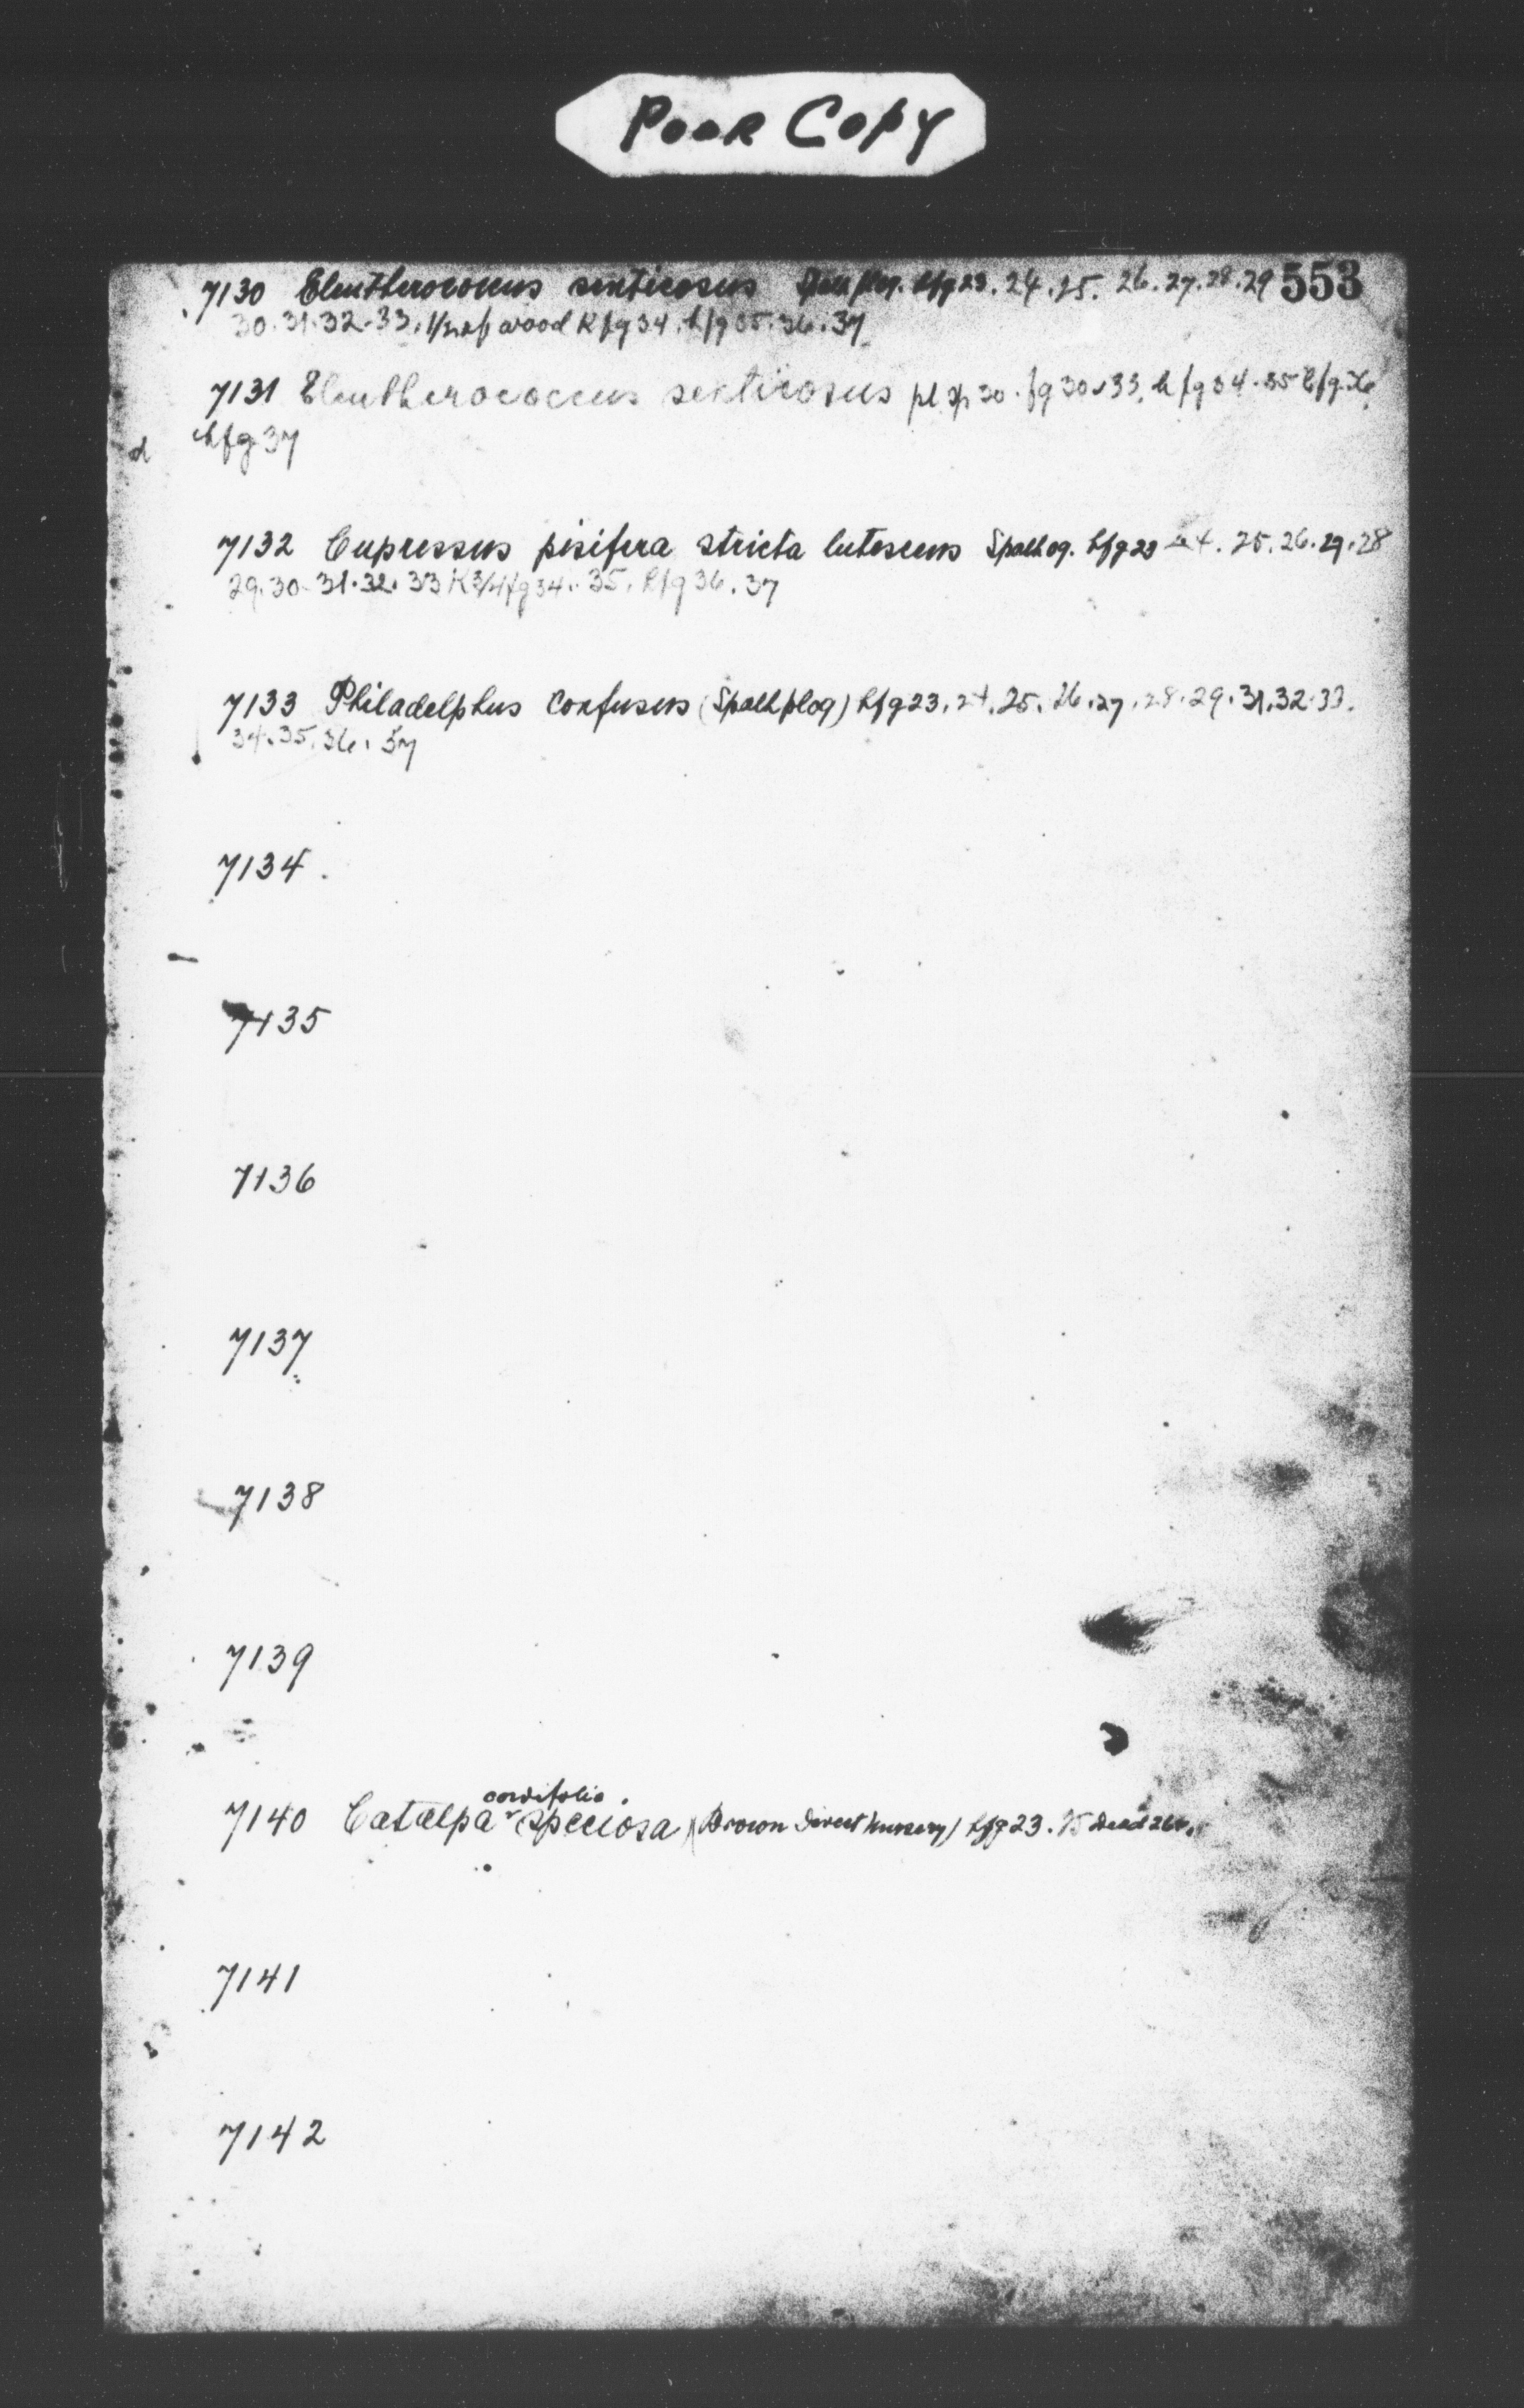 Poor Copy
553
7130 Eleutherococcus senticosus hfg 23. 24. 25. 26. 27. 28. 29
30. 31. 32. 33. wood K fg 34. hfg 35. 36. 37
7131 Eleutherococcus senticosus pl sp 30. fg 30 33. h fg 34. 35 hfg. 36
hfg 37
d
7132 Cupressus pisifera stricta lutescens Spath 09. hfg 23 24. 25. 26. 27. 28
29. 30. 31. 32. 33 fg 34. 35. hfg 36. 37
7133 Philadelphus confusus (Spath plog) hfg 23. 24. 25. 26. 27. 28. 29. 31. 32. 33.
34. 35. 36. 37
7134.
7135
7136
7137
7138
7139
cordifolia
7140 Catalpa speciosa (Brown Nursery) hfg 23. 25 Dead 26
7141
7142